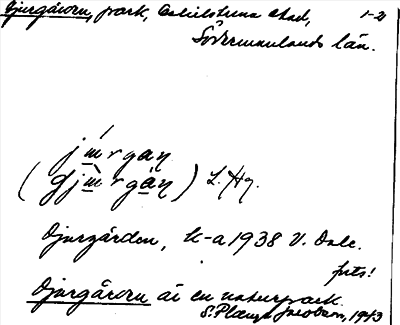 Djurgården, park, Eskilstuna stad, 1-2
Södermanlands län.
jɯ́rgaɳ
(djɯ̀rgàɳ) L. Hg.
Djurgården, k-a 1938 V. Dale.
frts!
Djurgården är en naturpark.
S. Plænge Jacobson, 1943